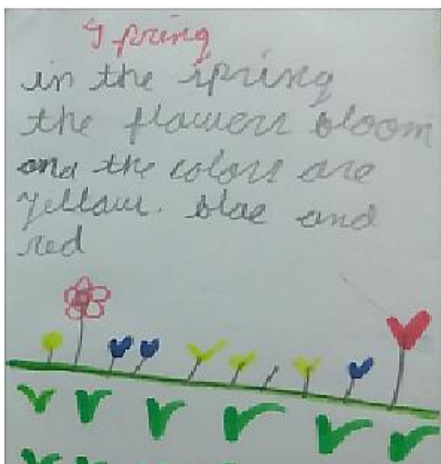 Spring
in the spring
the flowers bloom
and the colors are
yellow. blue and
red